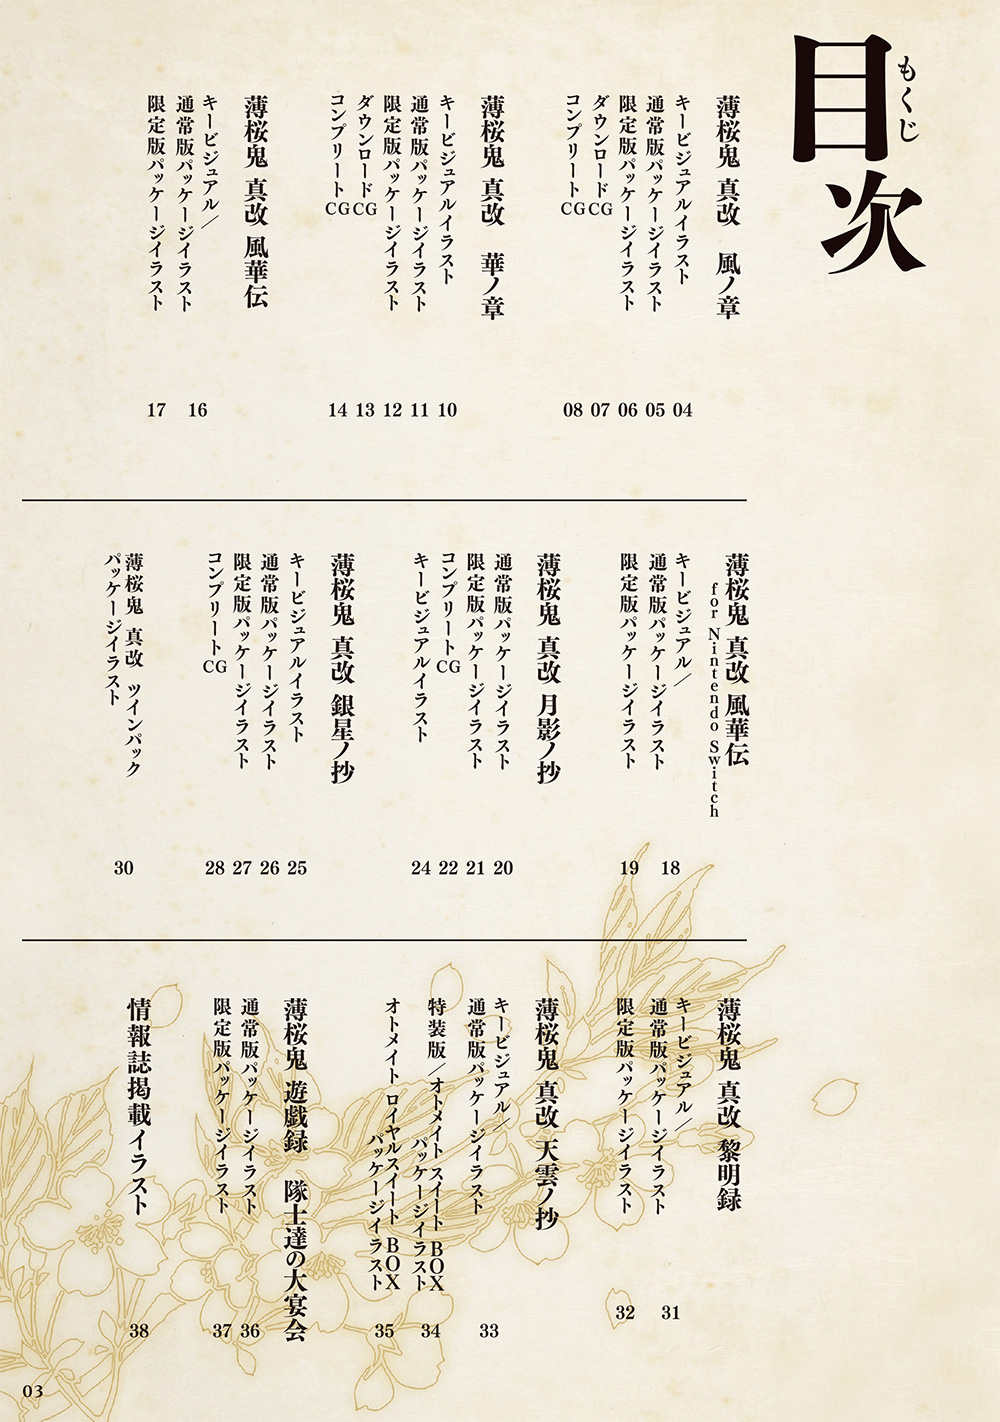 目次
もくじ
薄桜鬼 真改 風ノ章
キービジュアルイラスト 04
通常版パッケージイラスト 05
限定版パッケージイラスト 06
ダウンロードCG 07
コンプリートCG 08
薄桜鬼 真改 華ノ章
キービジュアルイラスト 10
通常版パッケージイラスト 11
限定版パッケージイラスト 12
ダウンロードCG 13
コンプリートCG 14
薄桜鬼 真改 風華伝
キービジュアル／
通常版パッケージイラスト 16
限定版パッケージイラスト 17
薄桜鬼 真改 風華伝
for Nintendo Switch
キービジュアル／
通常版パッケージイラスト 18
限定版パッケージイラスト 19
薄桜鬼 真改 月影ノ抄
通常版パッケージイラスト 20
限定版パッケージイラスト 21
コンプリートCG 22
キービジュアルイラスト 24
薄桜鬼 真改 銀星ノ抄
キービジュアルイラスト 25
通常版パッケージイラスト 26
限定版パッケージイラスト 27
コンプリートCG 28
薄桜鬼 真改 ツインパック
パッケージイラスト 30
薄桜鬼 真改 黎明録
キービジュアル／
通常版パッケージイラスト 31
限定版パッケージイラスト 32
薄桜鬼 真改 天雲ノ抄
キービジュアル／
通常版パッケージイラスト 33
特装版／オトメイトスイートBOX
パッケージイラスト 34
オトメイトロイヤルスイートBOX
パッケージイラスト 35
薄桜鬼 遊戯録 隊士達の大宴会
通常版パッケージイラスト 36
限定版パッケージイラスト 37
情報誌掲載イラスト 38
03